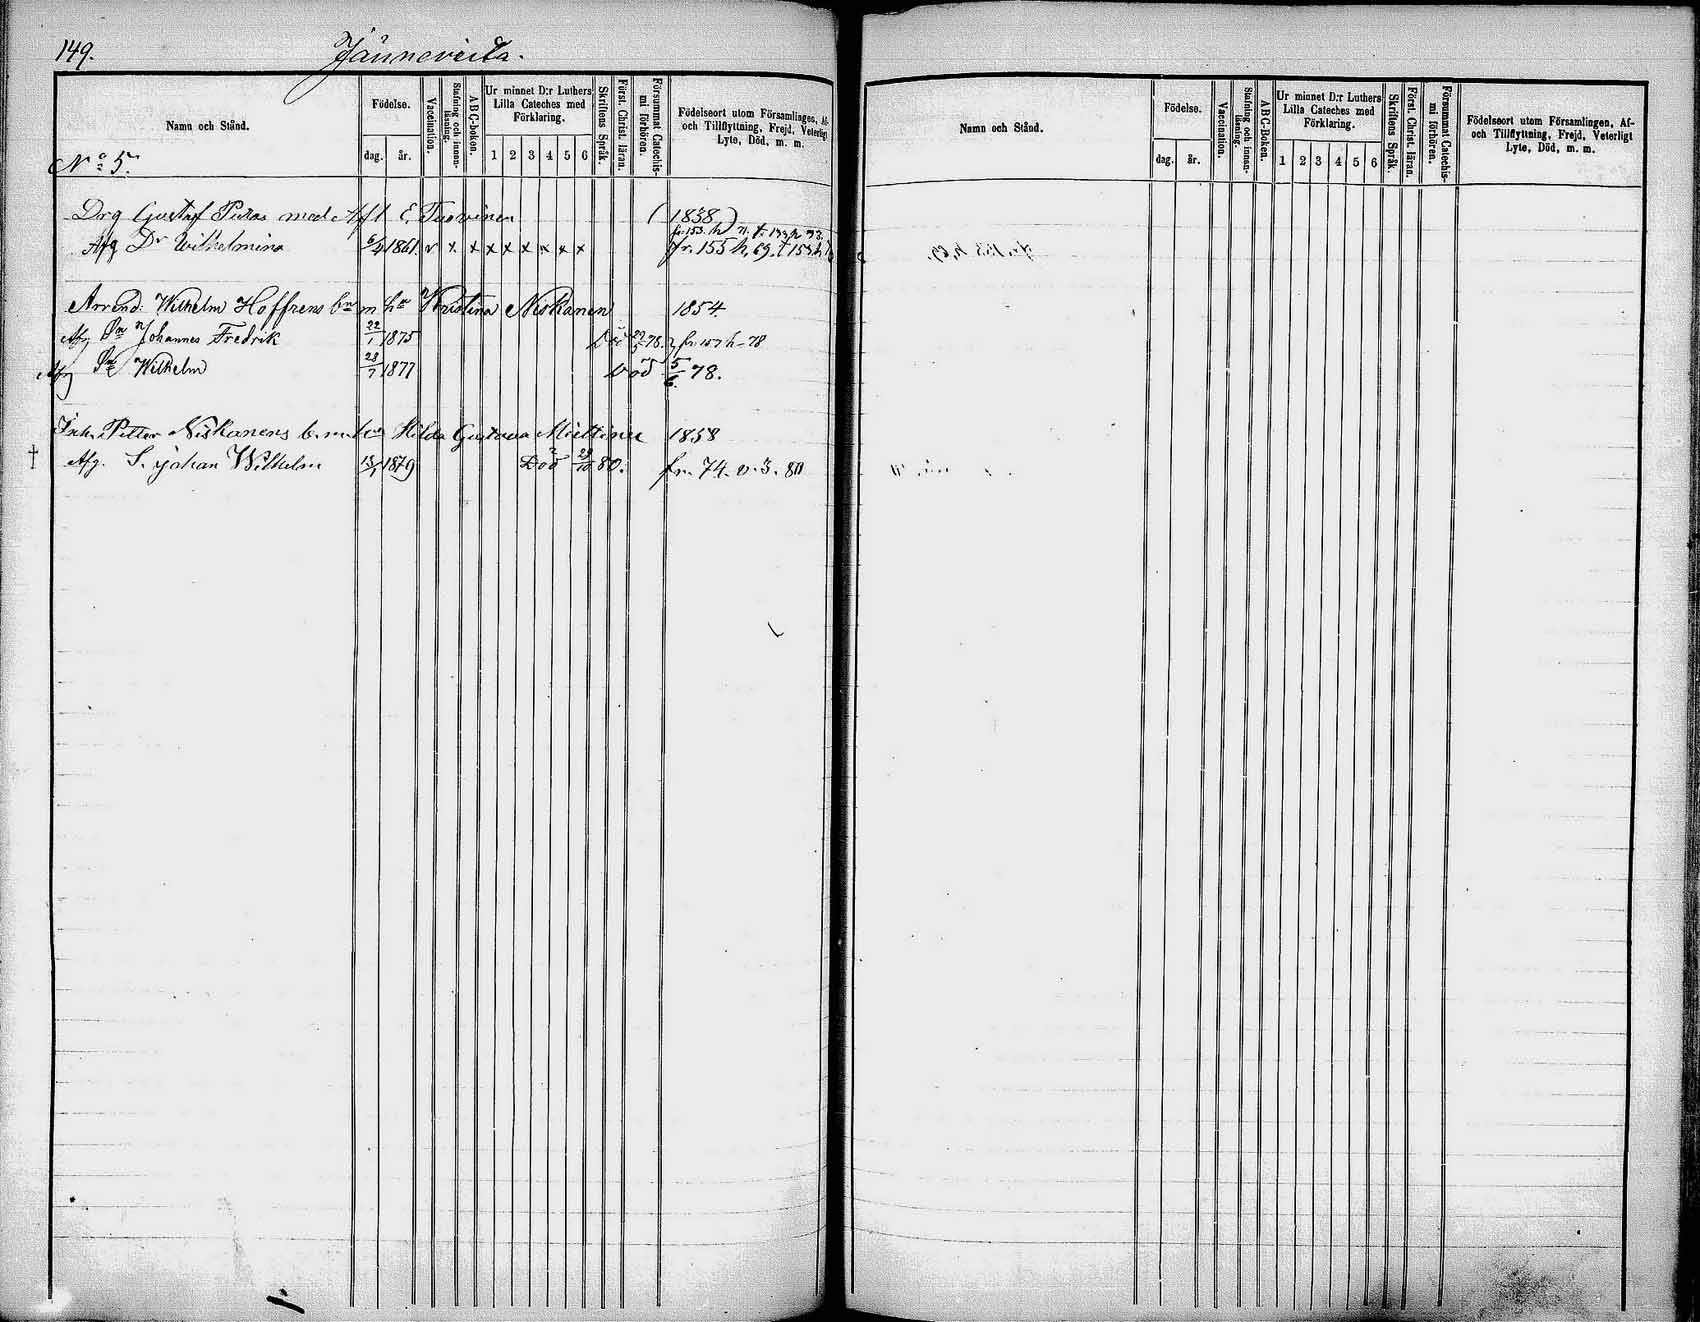 149. Jänneviita.
Namn och Stånd.
Födelse.
dag. år.
Vaccination.
Stafning och innan-läsning.
ABC-boken.
Ur minnet D:r Luthers Lilla Cateches med Förklaring.
1 2 3 4 5 6
Skriftens Språk.
Först. Christ. läran.
Försummat Catechis-mi förhören.
Födelseort utom Församlingen, Af- och Tillflyttning, Frejd, Veterligt Lyte, Död, m. m.
No 5.
Drg Gustaf med E. Tuovinen (1838)
fr. 153. h 71. t. 133 h 73.
Afg Dr Wilhelmina 6/4 1861. v x x x x x x x x fr. 155 h. 69. t 153 h
Arrend: Wilhelm Hoffrens bn m hu Kristina Niskanen 1854.
Afg Sn Johannes Fredrik 22/1 1875 Död 29/5 78. fr. 157 h - 78
Afg Sn Wilhelm 28/7 1877 Död 5/6 78.
Inh. Petter Niskanens b. m. hu Hilda Gustava Miettinen 1858
† Afg. S. Johan Wilhelm 13/1 1879 Död 29/10 80. fr. 74. v. 3. 80
Namn och Stånd.
Födelse.
dag. år.
Vaccination.
Stafning och innan-läsning.
ABC-Boken.
Ur minnet D:r Luthers Lilla Cateches med Förklaring.
1 2 3 4 5 6
Skriftens Språk.
Först. Christ. läran.
Försummat Catechis-mi förhören.
Födelseort utom Församlingen, Af- och Tillflyttning, Frejd, Veterligt Lyte, Död, m. m.